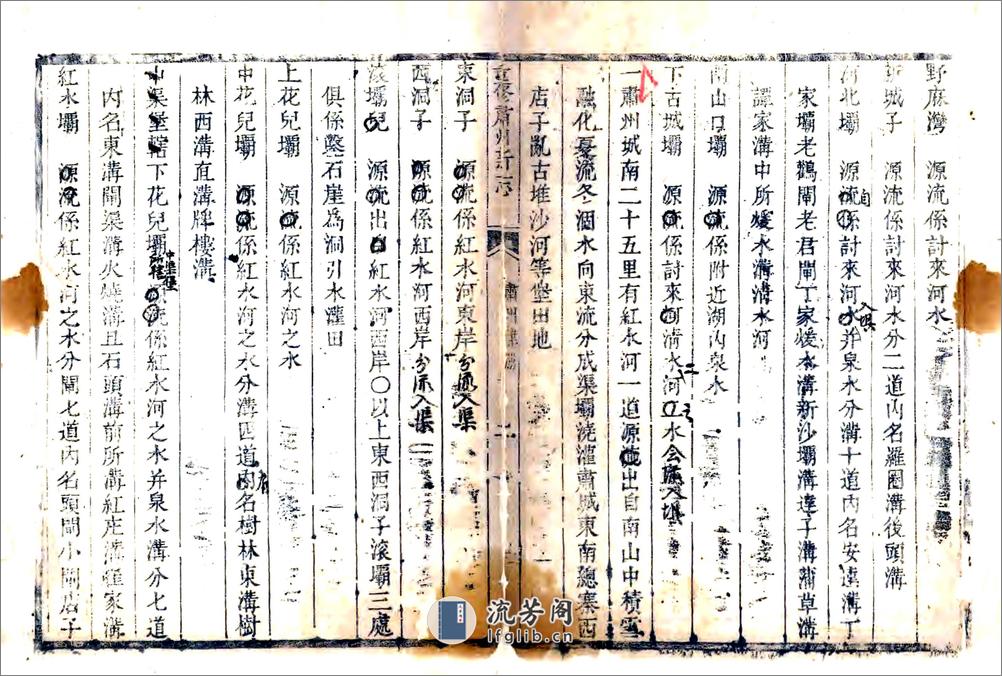 野麻灣 源流係討來河水
新城子 源流係討來河水分二道內名羅圈溝後頭溝
河北壩 源流自係討來河水入壩并泉水分溝十道內名安遠溝丁
家壩老鶴閘老君閘丁家煖水溝新沙壩溝達子溝蒲草溝
譚家溝中所煖水溝清水河
南山口壩 源流係附近湖內泉水
下古城壩 源流係討來河清水河二水會流入壩
一肅州城南二十五里有紅水河一道源流出自南山中積雪
融化夏流冬涸水向東流分成渠壩澆灌肅城東南總寨西
店子亂古堆沙河等堡田地
重修肅州新志 肅州 二
東洞子 源流係紅水河東岸分流入渠
西洞子 源流係紅水河西岸分流入渠
滾壩兒 源流出自紅水河西岸〇以上東西洞子滾壩三處
俱係鑿石崖爲洞引水灌田
上花兒壩 源流係紅水河之水
中花兒壩 源流係紅水河之水分溝四道內名樹林東溝樹
林西溝直溝牌樓溝
中渠堡轄下花兒壩 中渠堡 係紅水河之水并泉水溝分七道
內名東溝閘梁溝火燒溝石頭溝前所溝紅庄溝家溝
紅水壩 源流係紅水河之水分閘七道內名頭閘小閘店子
流芳阁
lfglib.cn